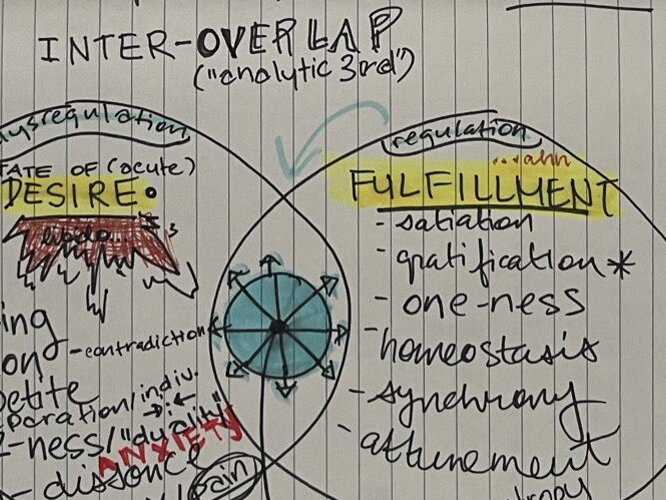 INTER-OVERLAP
("analytic 3rd")
dysregulation
regulation
...ahh
FATE OF (acute)
DESIRE.
FULFILLMENT
libido...
- satiation
- gratification*
- one-ness
- homeostasis
- synchrony
- attunement
ing
ond - contradiction
petite
paration/indiv.
2-ness/"duality"
ANXIETY
- dissonce
pain